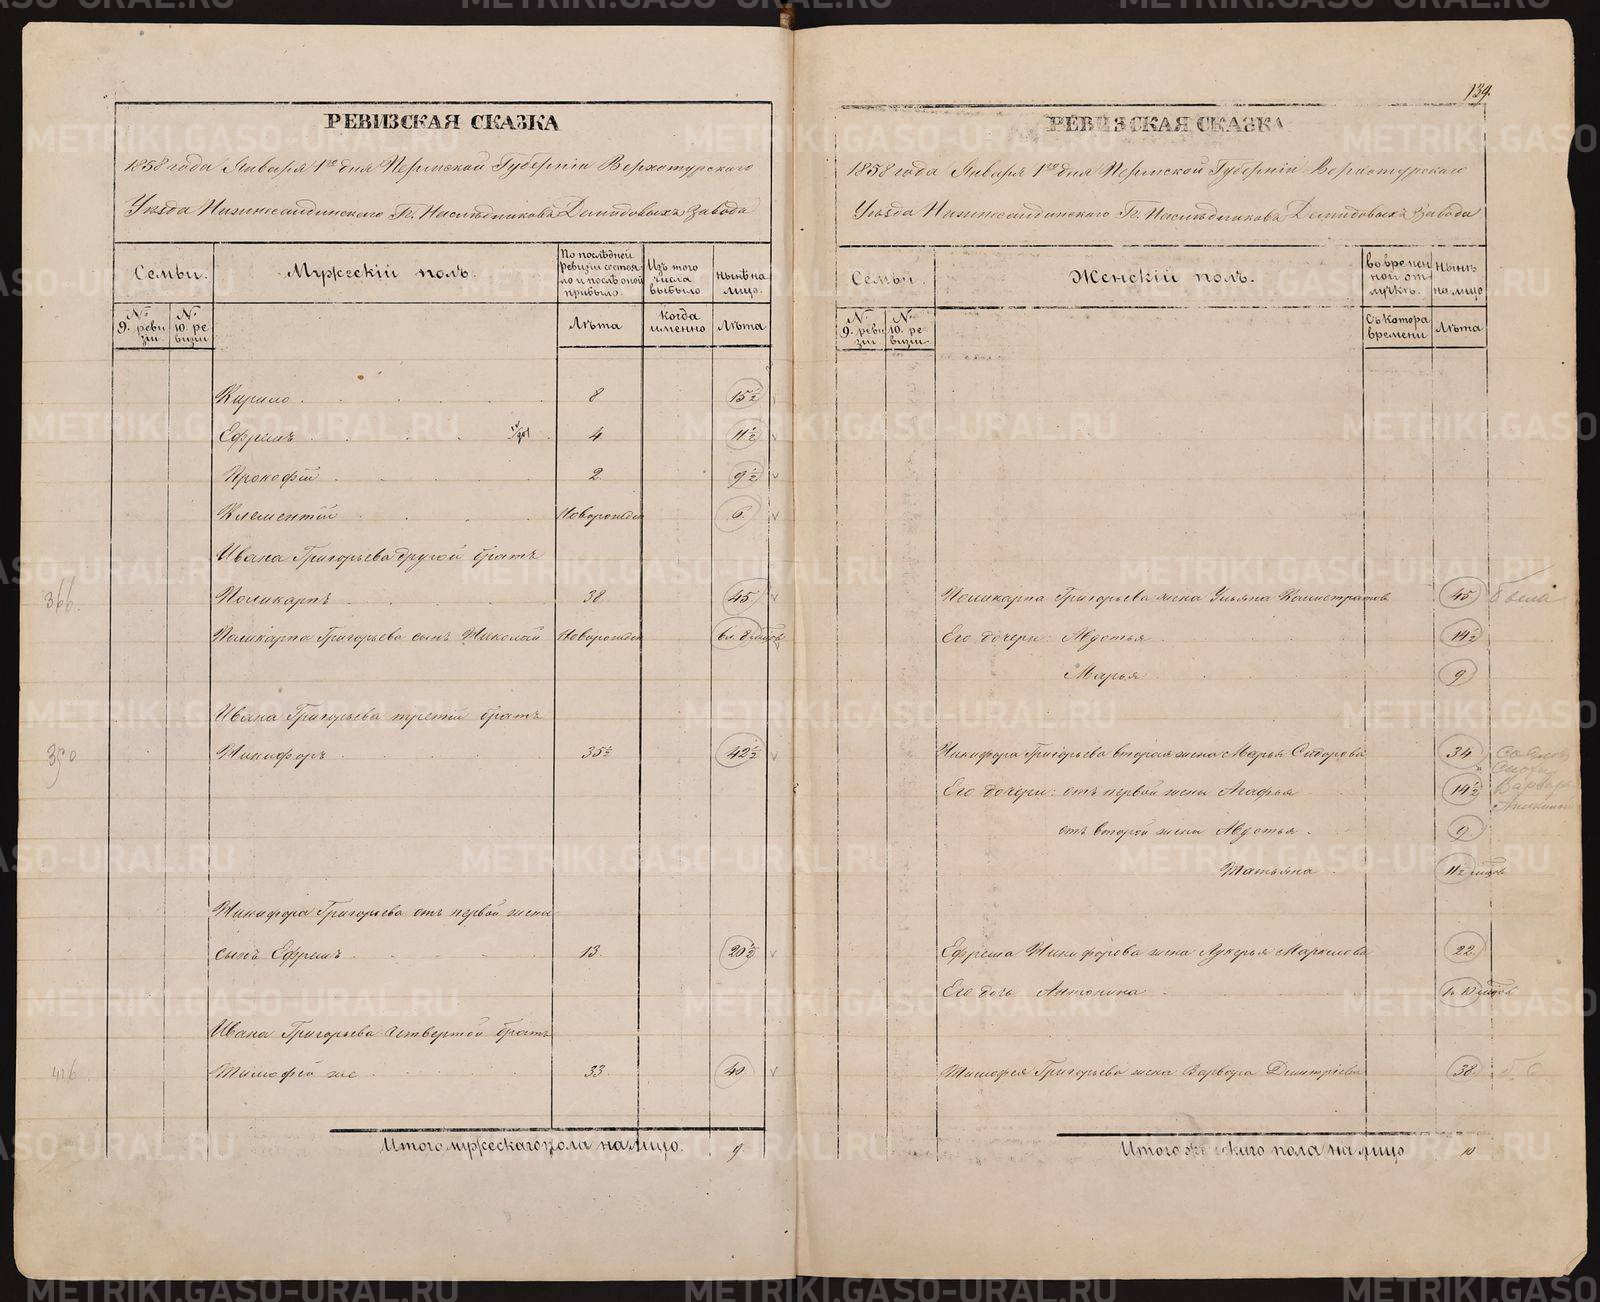 РЕВИЗСКАЯ СКАЗКА
1858 года Января 1го дня Пермской Губернiи Верхотурскаго
Уѣзда Нижнесалдинскаго Гг. Наслѣдниковъ Демидовыхъ Завода
Семьи.
Мужескiй полъ.
По послѣдней ревизiи состояло и послѣ оной прибыло.
Изъ того числа выбыло
Нынѣ на лицо.
№ 9. ревизiи
№ 10. ревизiи
Лѣта
Когда именно
Лѣта
Кирило 8 15½
Ефремъ 4 11½
Прокофiй 2 9½
Клементiй Новорожден 6
Ивана Григорьева другой братъ
366. Поликарпъ 38 45
Поликарпа Григорьева сынъ Николай Новорожден
Ивана Григорьева третiй братъ
Никифоръ 35½ 42½
Никифора Григорьева отъ первой жены
сынъ Ефремъ 13 20½
Ивана Григорьева четвертой братъ
Тимофей 33 40
Итого мужескаго пола на лицо. 9
139.
РЕВИЗСКАЯ СКАЗКА
1858 года Января 1го дня Пермской Губернiи Верхотурскаго
Уѣзда Нижнесалдинскаго Гг. Наслѣдниковъ Демидовыхъ Завода
Семьи.
Женскiй полъ.
Во временной отлучкѣ.
Нынѣ на лицо
№ 9. ревизiи
№ 10. ревизiи.
Съ котора времени
Лѣта
Поликарпа Григорьева жена Ульяна Калистратова 45
Его дочери: Авдотья 14½
Марья 9
Никифора Григорьева вторая жена Марья Сидорова 34
Его дочери: отъ первой жены Агафья 14½
отъ второй жены Авдотья 9
Татьяна
Ефрема Никифорова жена Лукерья Маркелова 22
Его дочь Антонина
Тимофея Григорьева жена Варвара Дмитрiева 38
Итого женскаго пола на лицо 10
METRIKI.GASO-URAL.RU